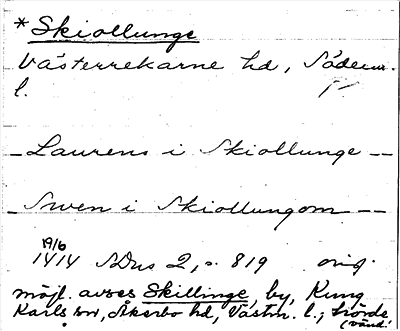 * Skiollunge
Västerrekarne hd, Söderm.
l.
_ Laurens i Skiollunge _ _
_ Swen i Skiollungom _ _
19/6
1414 SDns 2, s. 819 orig.
möjl. avses Skillinge, by, Kung
Karls sn, Åkerbo hd, Västm. l.;
(vänd!